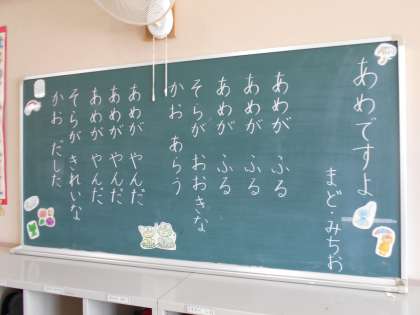 あめですよ
まど・みちお
あめが　ふる
あめが　ふる
あめが　ふる
そらが　おおきな
かお　あらう
あめが　やんだ
あめが　やんだ
あめが　やんだ
そらが　きれいな
かお　だした